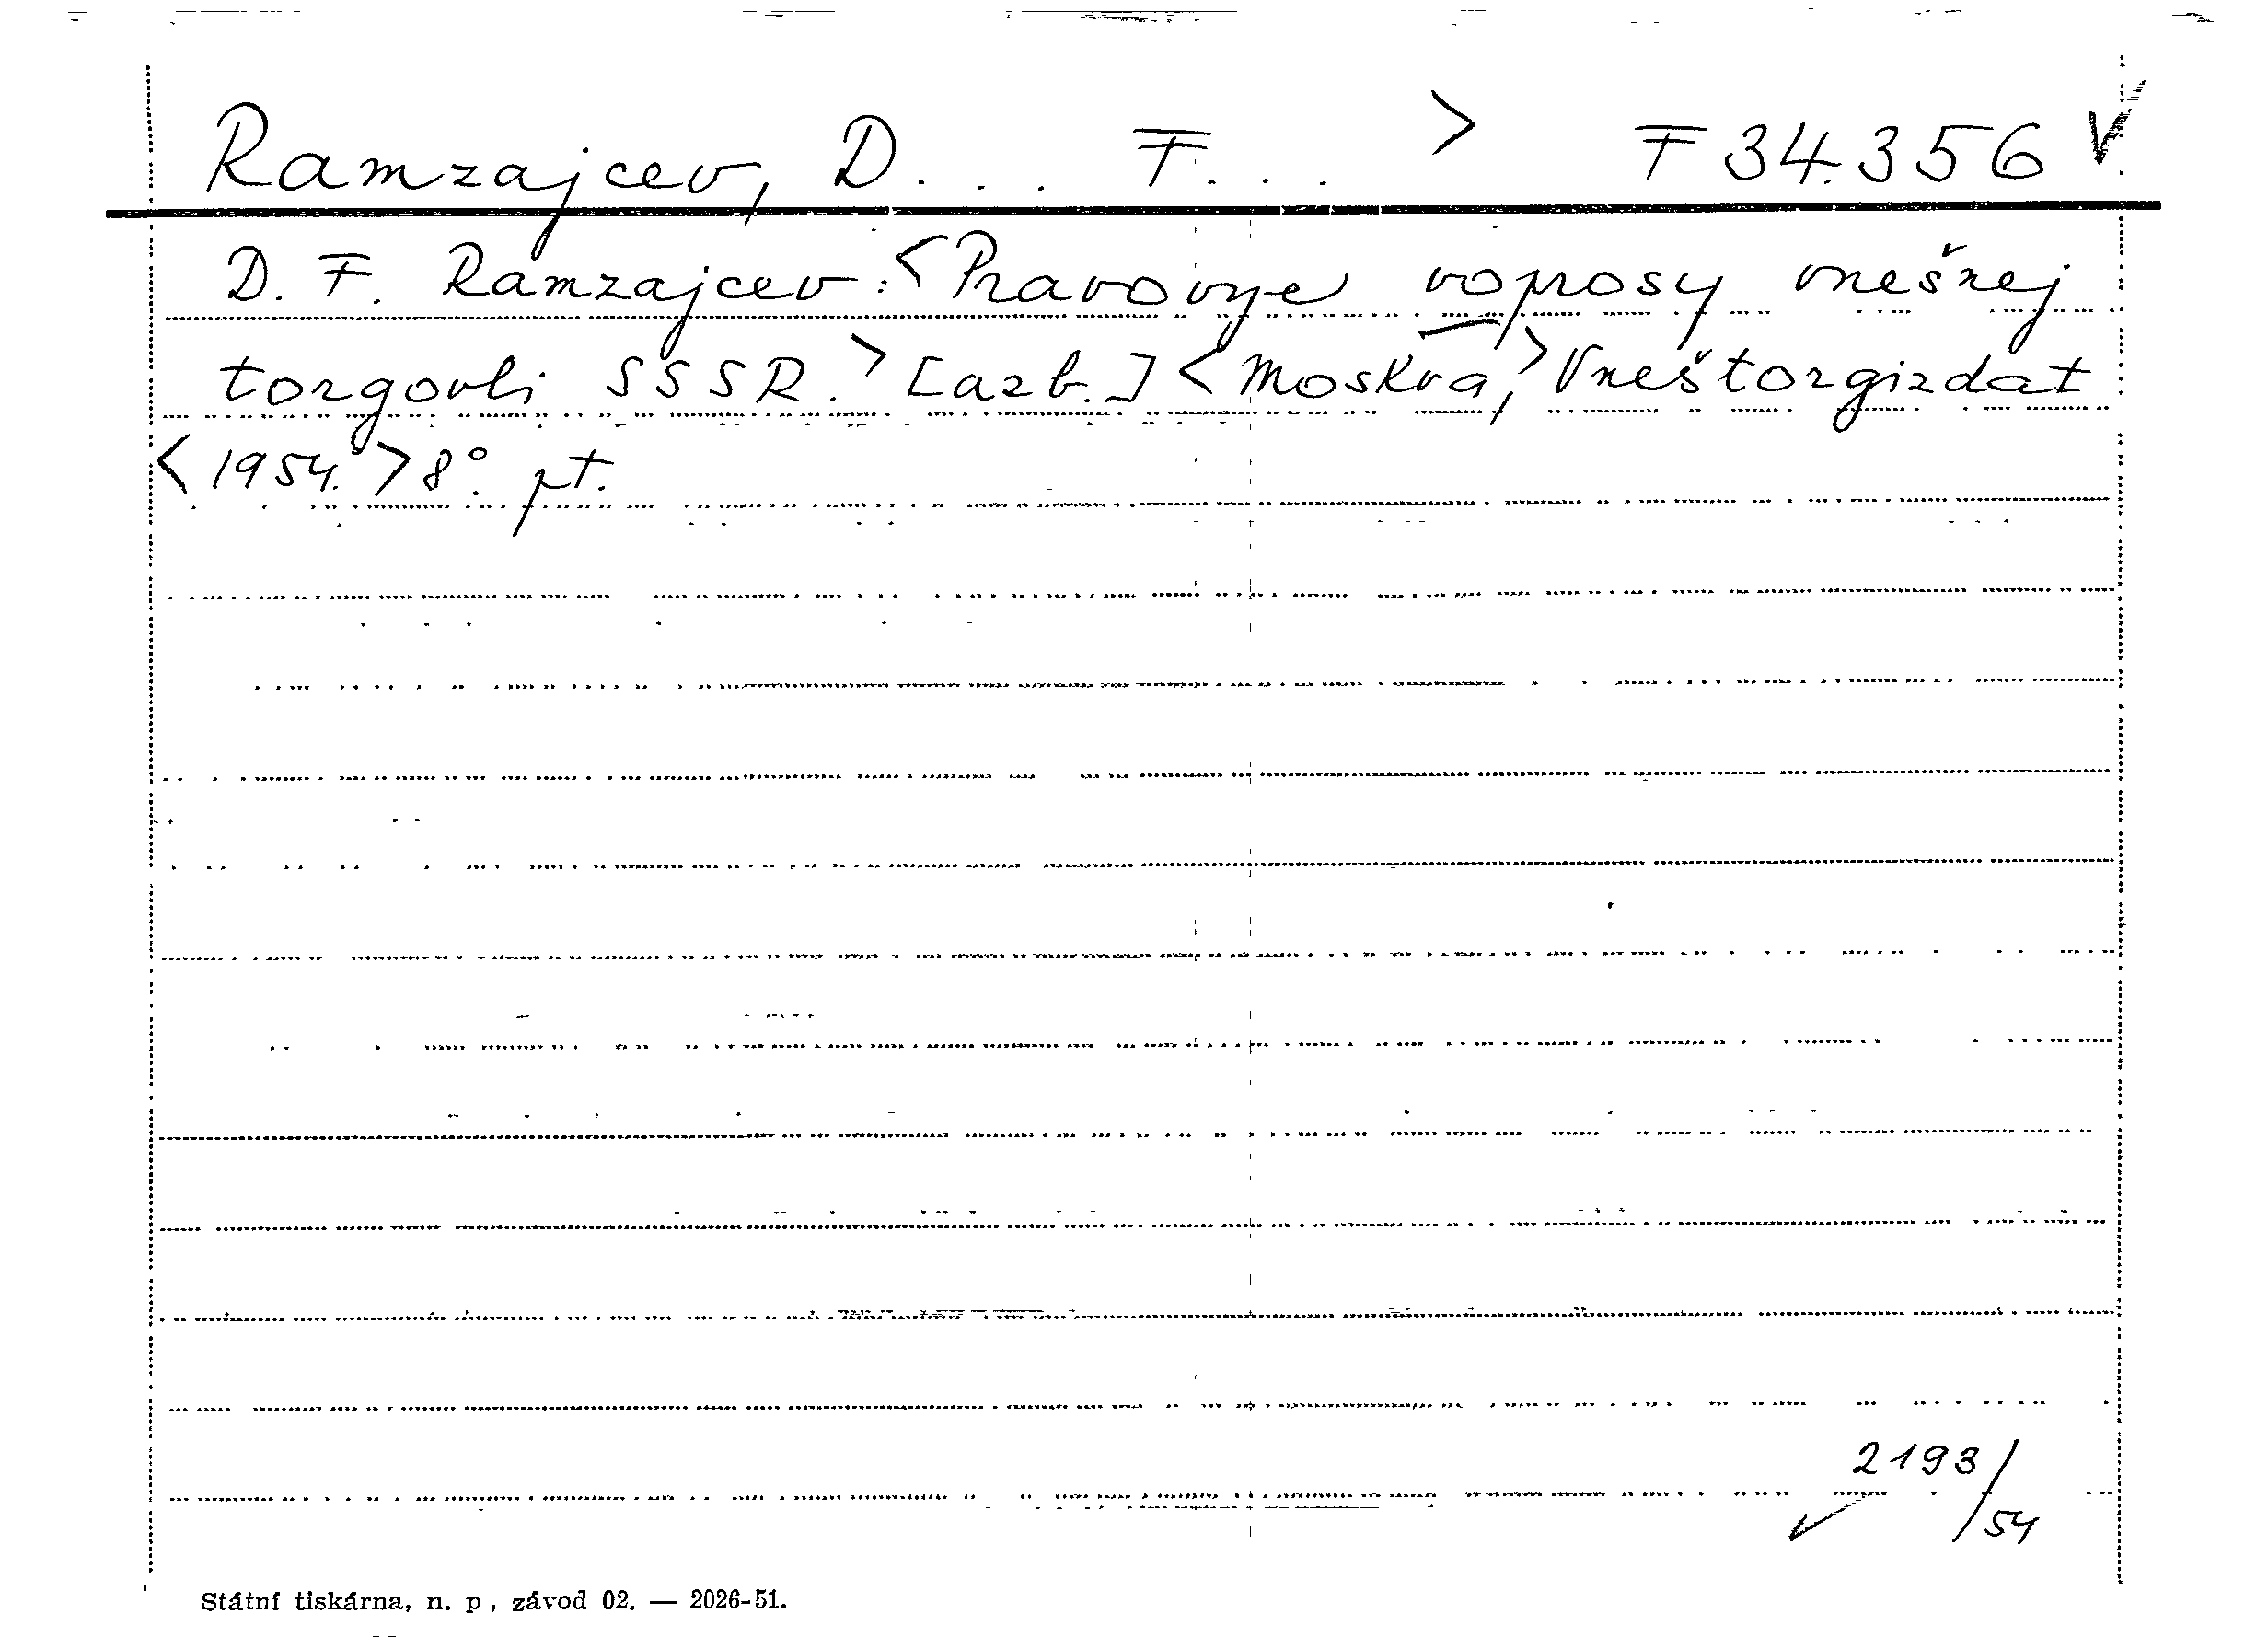 Ramzajcev, D... F... > F 34.356 V
D. F. Ramzajcev: <Pravovye voprosy vnešnej
torgovli SSSR.> [azb.] <Moskva,> Vneštorgizdat
<1954.> 8°. pt.
2193/54
✓
Státní tiskárna, n. p., závod 02. — 2026-51.